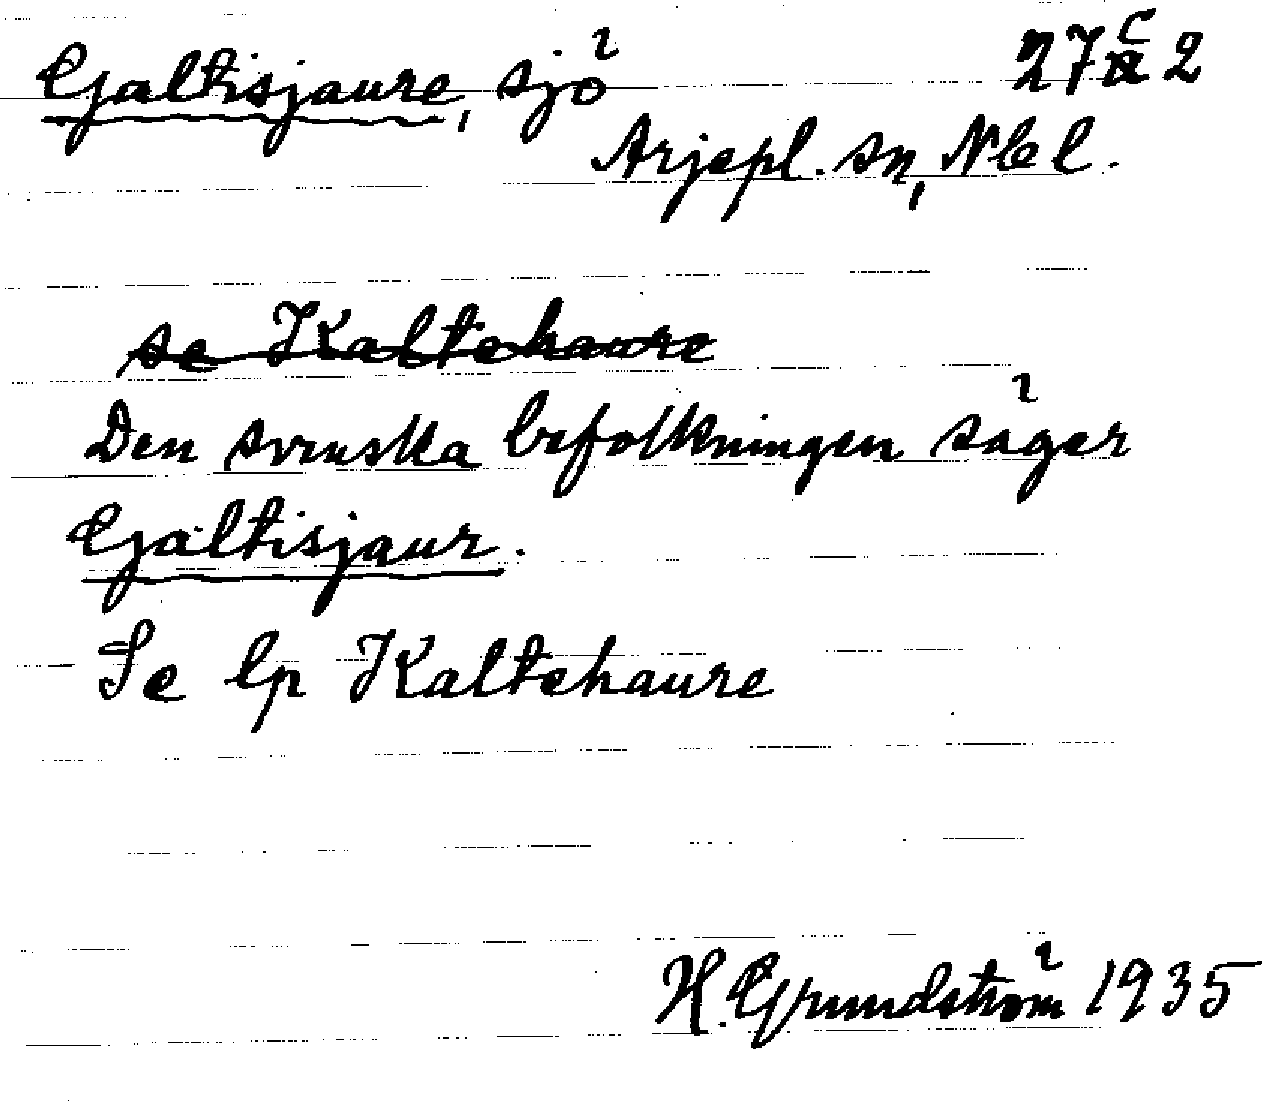 Galtisjaure, sjö 27 C 2
Arjepl. sn, Nbl.
se Kaltehaure
Den svenska befolkningen säger
Galtisjaur.
Se lp Kaltehaure
H. Grundström 1935